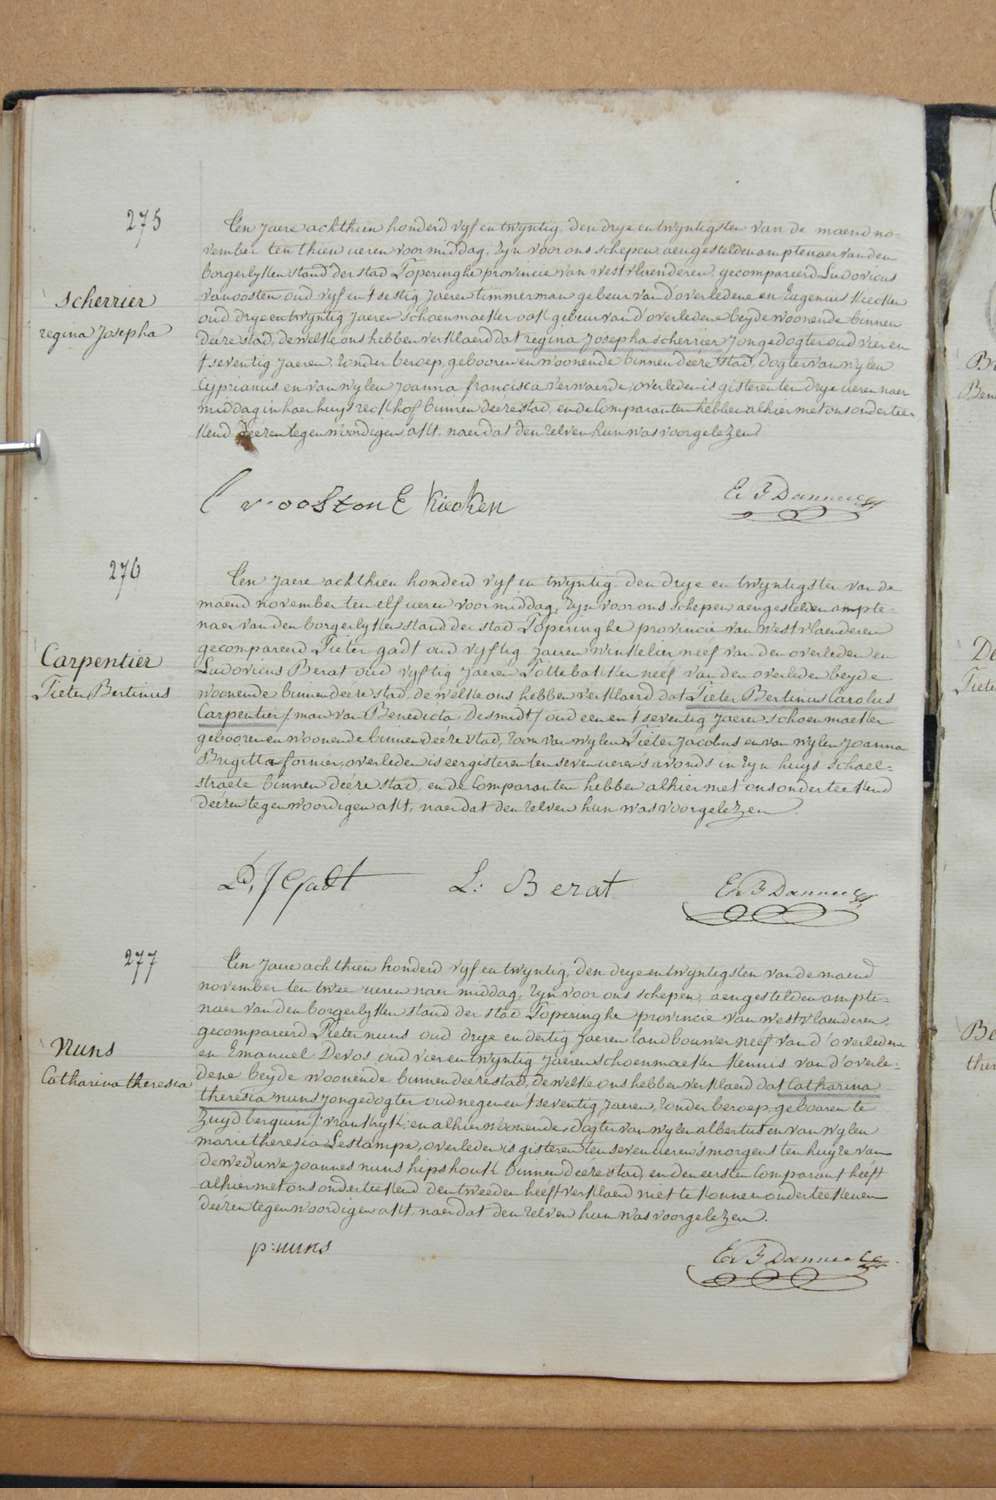 275
Scherrier
regina Josepha
Ten Jaere achthien honderd vyf en twyntig, den drye en twyntigsten van de maend no-
vember ten thien ueren voor middag, zyn voor ons schepen aengestelden amptenaer van den
borgerlyken stand der stad Poperinghe provincie van westvlaenderen, gecompareerd Ludovicus
vanoosten oud vyf en t'sestig Jaeren timmerman gebeur van d'overledene en Eugenius Kiecken
oud drye en twyntig Jaeren Schoenmaeker ook gebeur van d'overledene beyde woonende binnen
deeze stad, de welke ons hebben verklaerd dat regina Josepha Scherrier Jongedogter oud vier en
t'seventig Jaeren, zonder beroep, gebooren en woonende binnen deéze stad, dogter van wylen
Cyprianus en van wylen Joanna francisca verwaerde, overleden is gisteren ten drye ueren naer
middag in haer huys reckhof binnen deéze stad, en de Comparanten hebben alhier met ons onderteé-
kend deézen tegenwoordigen akt, naer dat den zelven hun was voorgelezen
L v-oosten E Kiecken
276
Carpentier
Pieter Bertinus
Ten Jaere achthien honderd vyf en twyntig, den drye en twyntigsten van de
maend november ten elf ueren voor middag, zyn voor ons schepen aengestelden ampte-
naer van den borgerlyken stand der stad Poperinghe provincie van westvlaenderen
gecompareerd Pieter gadt oud vyftig Jaeren winkelier neef van den overleden en
Ludovicus Berat oud vyftig Jaeren Pottebakker neef van den overleden beyde
woonende binnen deeze stad, de welke ons hebben verklaerd dat Pieter Bertinus Carolus
Carpentier /man van Benedicta Desmidt/ oud een en t'seventig Jaeren schoenmaeker
gebooren en woonende binnen deeze stad, zoon van wylen Pieter Jacobus en van wylen Joanna
Brigitta fornier, overleden is eergisteren ten seven ueren s'avonds in zyn huys Schael-
straete binnen deéze stad, en de Comparanten hebben alhier met ons onderteekend
deézen tegenwoordigen akt, naer dat den zelven hun was voorgelezen
L: Berat
277
Nuns
Catharina theresia
Ten Jaere achthien honderd vyf en twyntig, den drye en twyntigsten van de maend
november ten twee ueren naer middag, zyn voor ons schepen, aengestelden ampte-
naer van den borgerlyken stand der stad Poperinghe provincie van westvlaenderen,
gecompareerd Pieter nuns oud drye en dertig Jaeren landbouwer neef van d'overledene
en Emanuel Devos oud vier en twyntig Jaeren schoenmaeker kennis van d'overle-
dene beyde woonende binnen deeze stad, de welke ons hebben verklaerd dat Catharina
theresia nuns Jongedogter oud negen en t'seventig Jaeren, zonder beroep, gebooren te
Zuydberquin /:vrankryk:/ en alhier woonende, dogter van wylen albertus en van wylen
marie theresia Lestampe, overleden is gisteren ten seven ueren s'morgens ten huyze van
de weduwe Joannes nuns hipshouk binnen deeze stad, en den eersten Comparant heéft
alhier met ons onderteekend den tweeden heeft verklaerd niet te konnen onderteekenen
deézen tegenwoordigen akt, naer dat den zelven hun was voorgelezen.
p: nuns